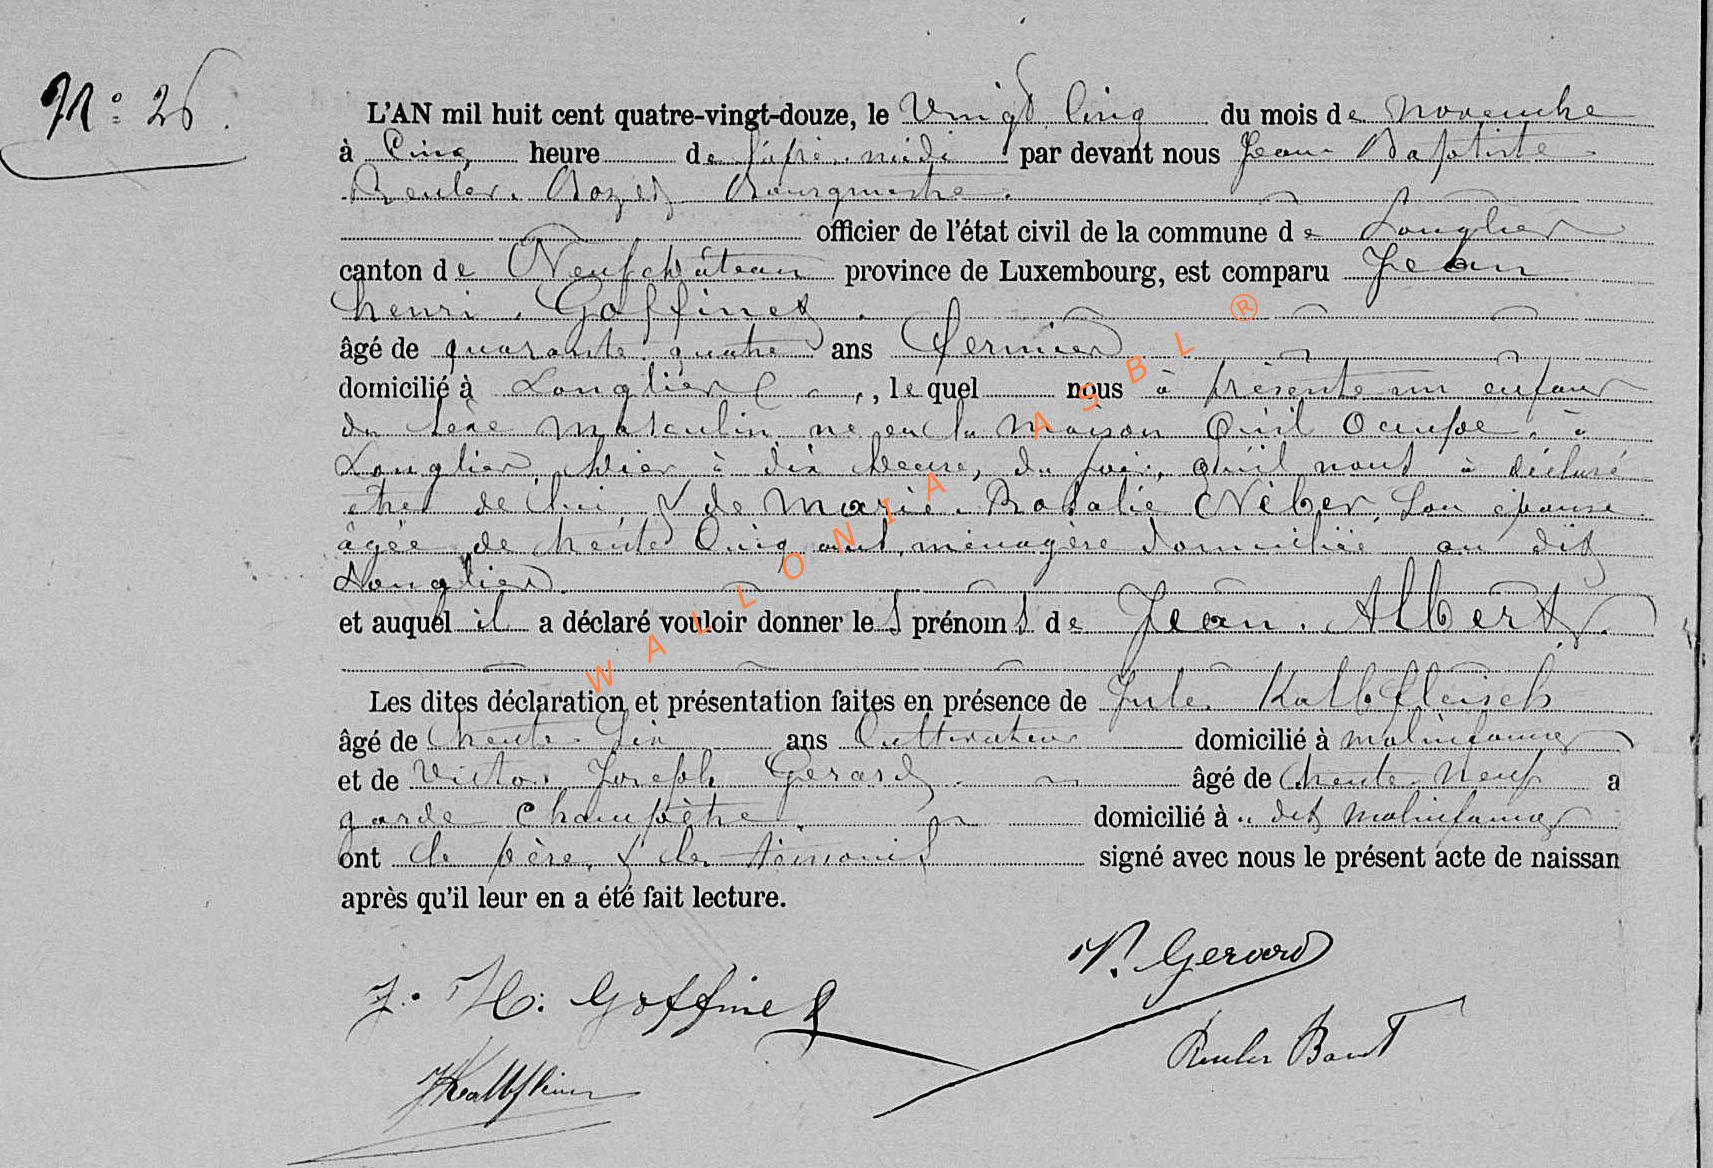 N° 26.
L'AN mil huit cent quatre-vingt-douze, le Vingt Cinq du mois de Novembre
à Cinq heure de l'après-midi par devant nous Jean Baptiste
Reuler Bozet Bourgmestre.
officier de l'état civil de la commune de Longlier
canton de Neufchâteau province de Luxembourg, est comparu Jean
henri Goffinet
âgé de quarante quatre ans fermier
domicilié à Longlier, lequel nous à présente un enfant
du sexe masculin né en la maison Qu'il Occupe à
Longlier, hier à dix heure, du soir, Qu'il nous à déclaré
être de lui, & de Marie Rosalie Niber, Son épouse
âgée de trente Cinq ans, ménagère domiciliée au dit
Longlier
et auquel il a déclaré vouloir donner les prénoms de Jean Albert.
Les dites déclaration et présentation faites en présence de Jules Kalbfleisch
âgé de trente Six ans Cultivateur domicilié à Molinfaing
et de Victor Joseph Gerard âgé de trente Neuf a
garde Champètre domicilié à dit Molinfaing
ont le père & les témoins signé avec nous le présent acte de naissan
après qu'il leur en a été fait lecture.
V. Gerard
J. H. Goffinet
Reuler
JKalbfleisch
WALLONIA ASBL ®